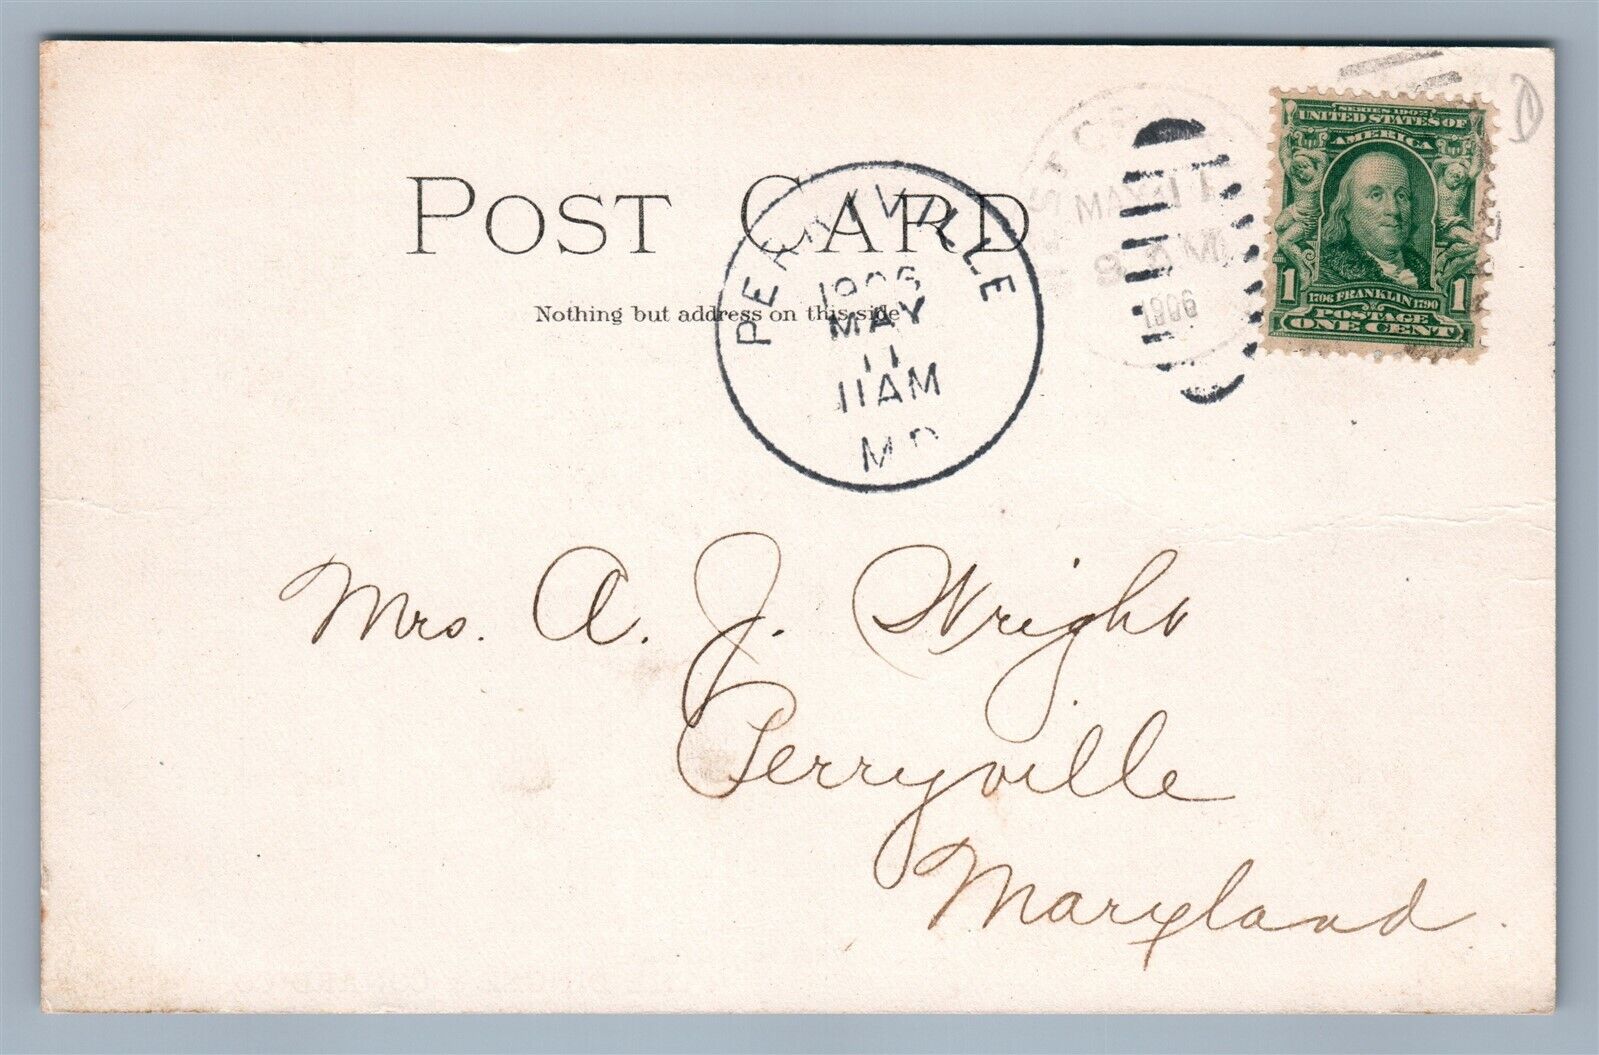 POST CARD
Nothing but address on this side
PERRYVILLE
1906
MAY
11
11AM
MD
MAY 11
1906
SERIES 1902
UNITED STATES OF
AMERICA
1 1
1706 FRANKLIN 1790
POSTAGE
ONE CENT
Mrs. A. J. Wright
Perryville
Maryland.